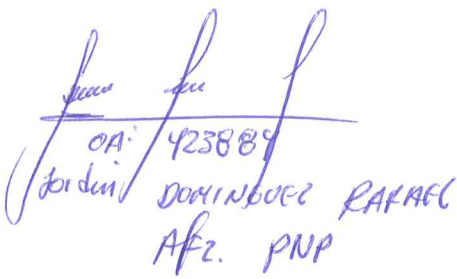 OA: 423884
Jordin DOMINGUEZ RAFAEL
Afz. PNP